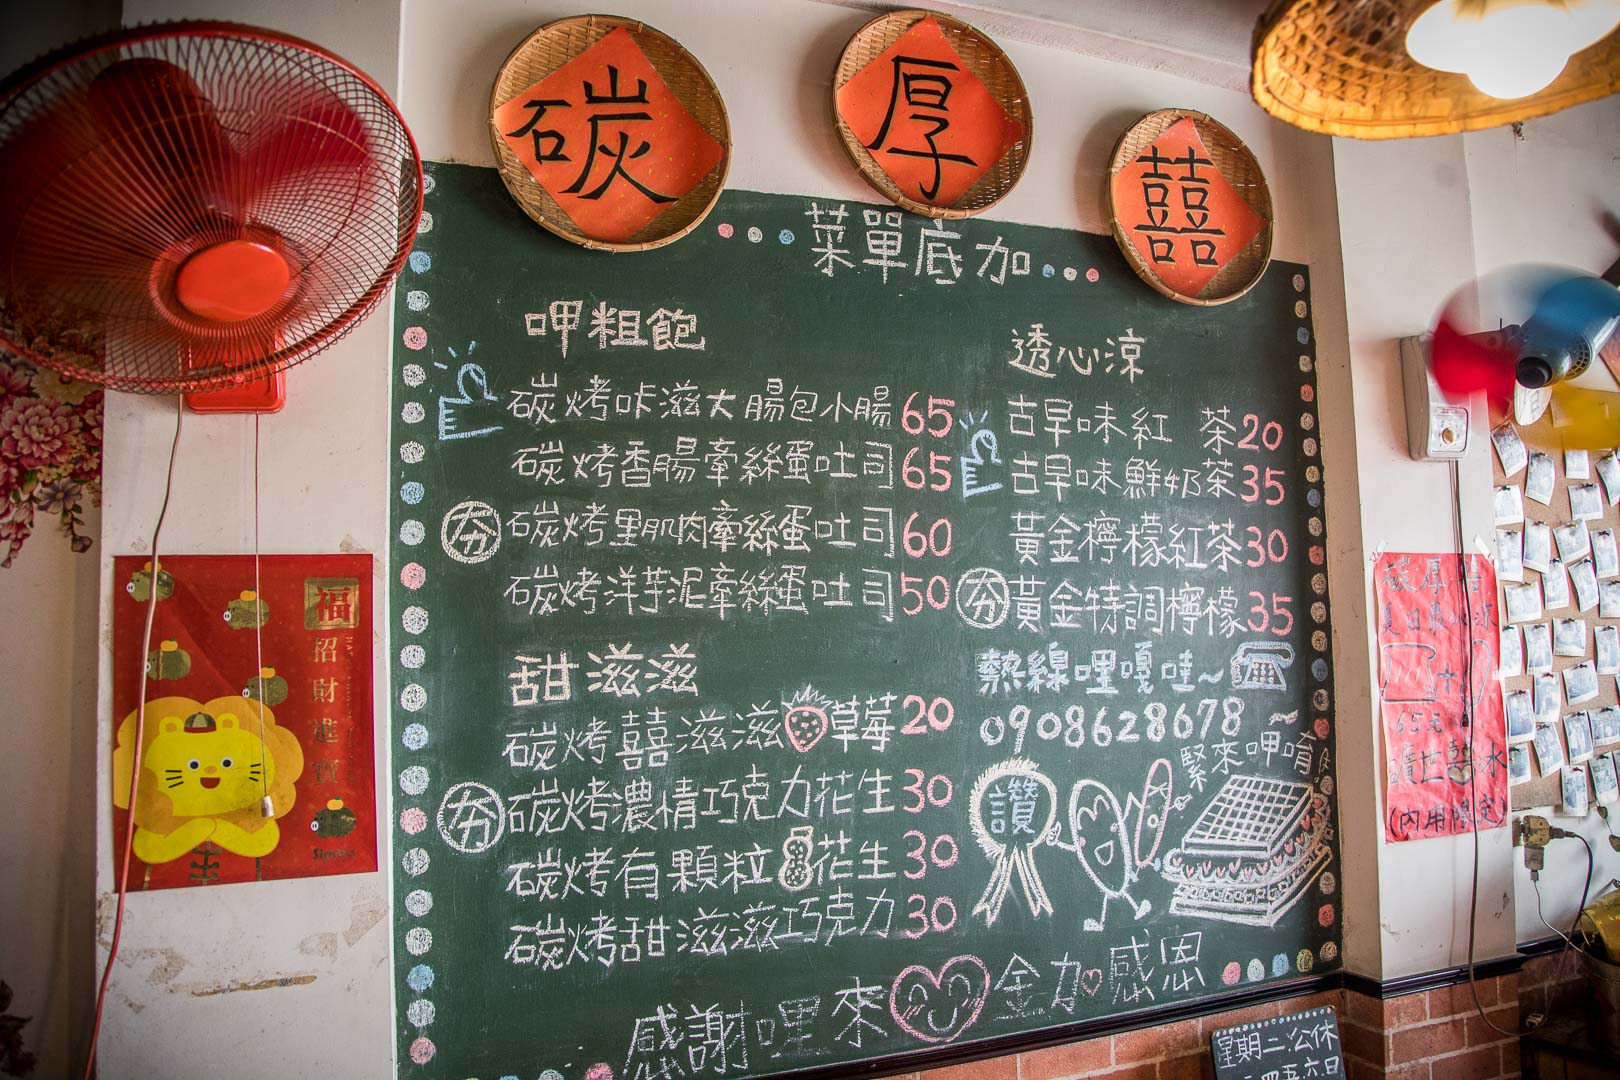 碳
厚
囍
菜單底加
呷粗飽
碳烤咔滋大腸包小腸65
碳烤香腸牽絲蛋吐司65
夯 碳烤里肌肉牽絲蛋吐司60
碳烤洋芋泥牽絲蛋吐司50
甜滋滋
碳烤囍滋滋草莓20
夯 碳烤濃情巧克力花生30
碳烤有顆粒花生30
碳烤甜滋滋巧克力30
透心涼
古早味紅 茶20
古早味鮮奶茶35
黃金檸檬紅茶30
夯 黃金特調檸檬35
熱線哩嘎哇~
0908628678
緊來呷唷~
讚
感謝哩來 金加感恩
福
招財進寶
碳厚囍
夏日最心涼
+
65元
曠世囍冰
(內用限定)
星期二公休
四五六日